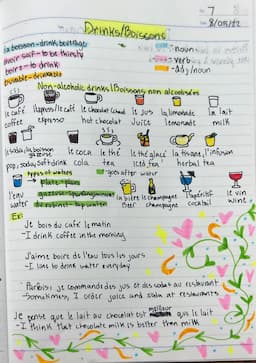 7
Drinks/Boissons
8/05/22
la boisson - drink beverage
- noun
avoir soif - to be thirsty
- verb
boire - to drink
buvable - drinkable
- adj/noun
Non-alcoholic drinks/Boissons non alcoolisées
le café l'express/le café le chocolat chaud le jus la limonade la lait
coffee espresso hot chocolat juice lemonade milk
le soda, la boisson gazeuse le coca le thé le thé glacé la tisane, l'infusion
pop, soda, soft drink cola tea iced tea herbal tea
types of waters
goes after water
plate - plain
gazeuse - sparkling
l'eau
du robinet - tap water
la bière le champagne l'apéritif le vin
water
Beer champagne cocktail wine
Ex:
Je bois du café le matin
- I drink coffee in the morning
J'aime boire de l'eau tous les jours
- I like to drink water everyday
Parfois, je commande des jus et des sodas au restaurant
- Sometimes, I order juice and soda at restaurants
Je pense que le lait au chocolat est meilleur que le lait
- I think that chocolate milk is better than milk